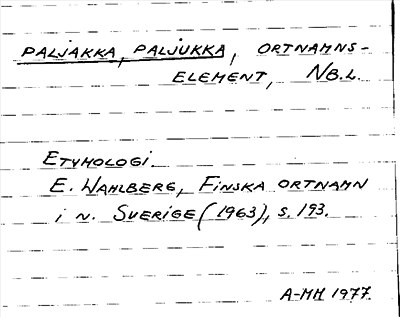 PALJAKKA, PALJUKKA, ORTNAMNS-
ELEMENT, NB.L.
ETYMOLOGI.
E. WAHLBERG, FINSKA ORTNAMN
i N. SVERIGE (1963), S. 193.
A-MH 1977.